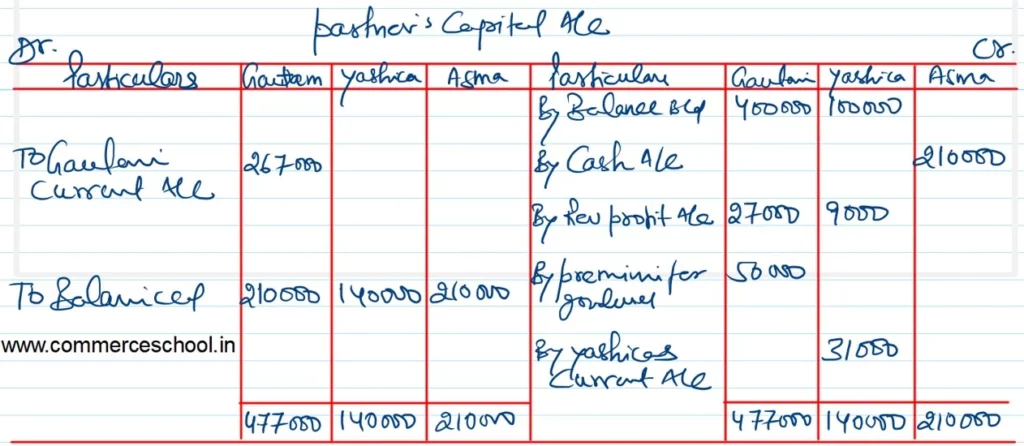 partner's Capital A/c
Dr. Cr.
Particulars Gautam Yashica Asma Particulars Gautam Yashica Asma
By Balance B/d 400000 100000
To Gautam Current A/c 267000 By Cash A/c 210000
By Rev profit A/c 27000 9000
To Balance c/d 210000 140000 210000 By premium for goodwill 50000
www.commerceschool.in
By Yashica's Current A/c 31000
477000 140000 210000 477000 140000 210000